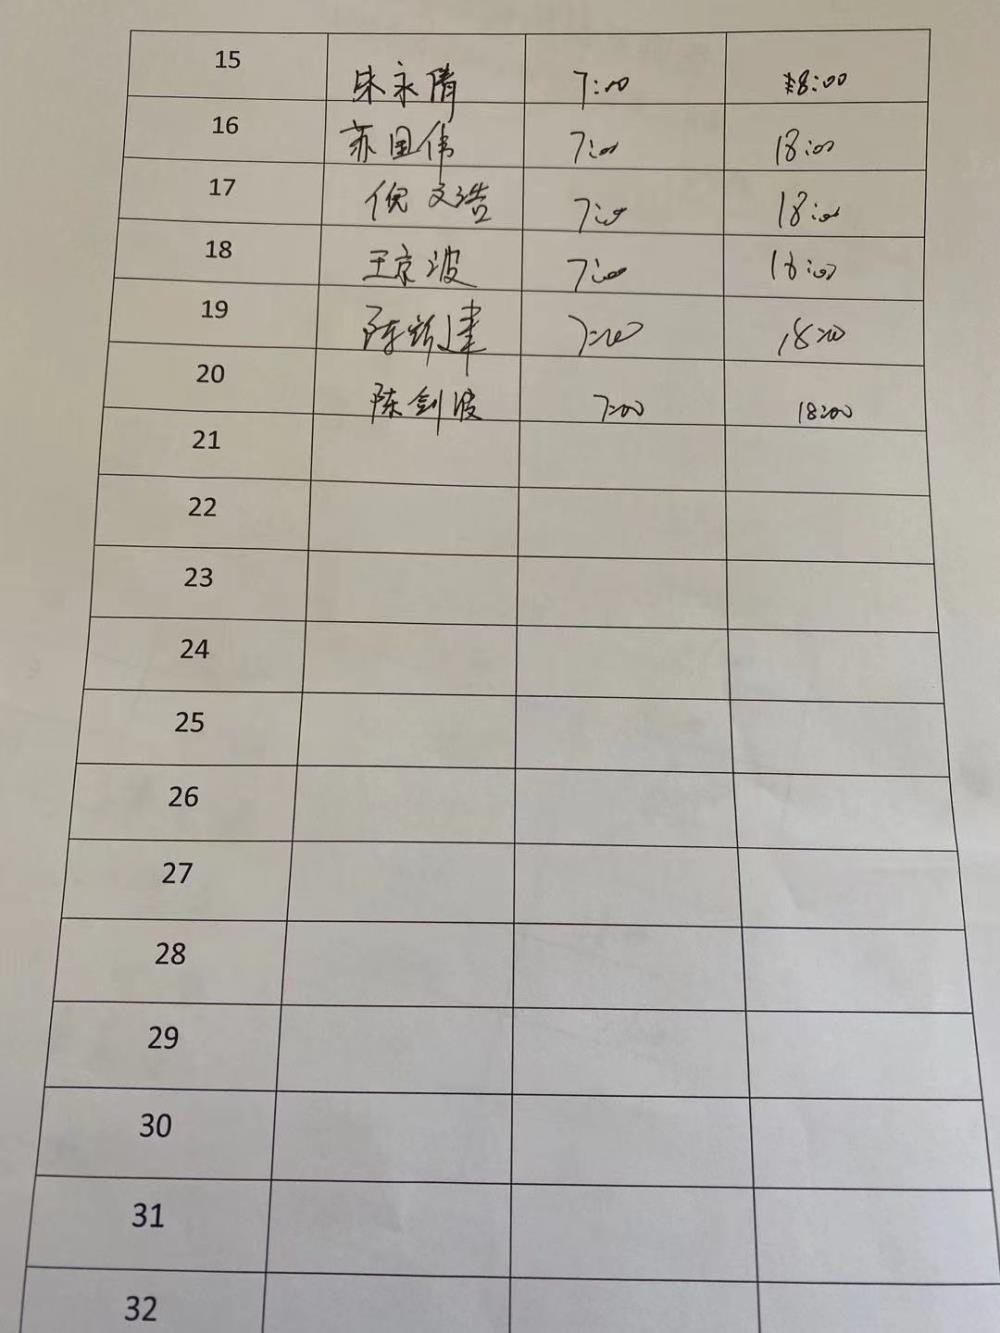 15 朱永倩 7:00 18:00
16 苏国伟 7:00 18:00
17 倪文浩 7:00 18:00
18 王京波 7:00 18:00
19 陈新建 7:00 18:00
20 陈剑波 7:00 18:00
21
22
23
24
25
26
27
28
29
30
31
32